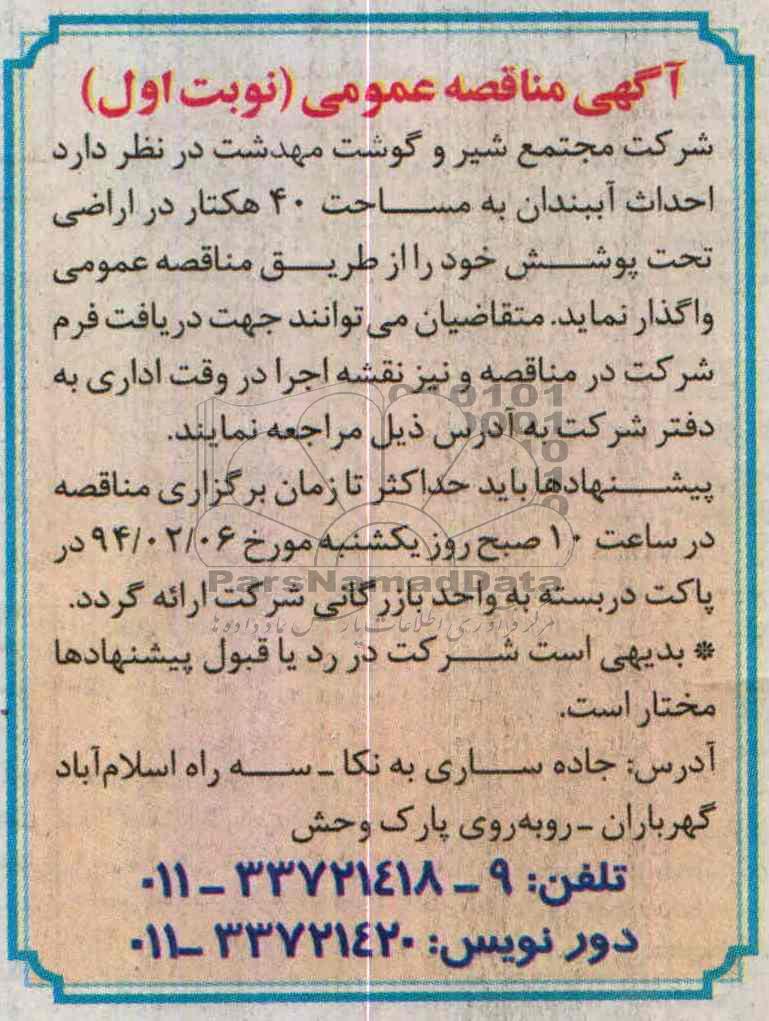 آگهی مناقصه عمومی (نوبت اول)
شرکت مجتمع شیر و گوشت مهدشت در نظر دارد
احداث آببندان به مساحت ۴۰ هکتار در اراضی
تحت پوشش خود را از طریق مناقصه عمومی
واگذار نماید. متقاضیان می‌توانند جهت دریافت فرم
شرکت در مناقصه و نیز نقشه اجرا در وقت اداری به
دفتر شرکت به آدرس ذیل مراجعه نمایند.
پیشنهادها باید حداکثر تا زمان برگزاری مناقصه
در ساعت ۱۰ صبح روز یکشنبه مورخ ۹۴/۰۲/۰۶ در
پاکت دربسته به واحد بازرگانی شرکت ارائه گردد.
* بدیهی است شرکت در رد یا قبول پیشنهادها
مختار است.
آدرس: جاده ساری به نکا ـ سه راه اسلام‌آباد
گهرباران ـ روبه‌روی پارک وحش
تلفن: ۹ ـ ۳۳۷۲۱۴۱۸ ـ ۰۱۱
دور نویس: ۳۳۷۲۱۴۲۰ ـ ۰۱۱
ParsNamadData